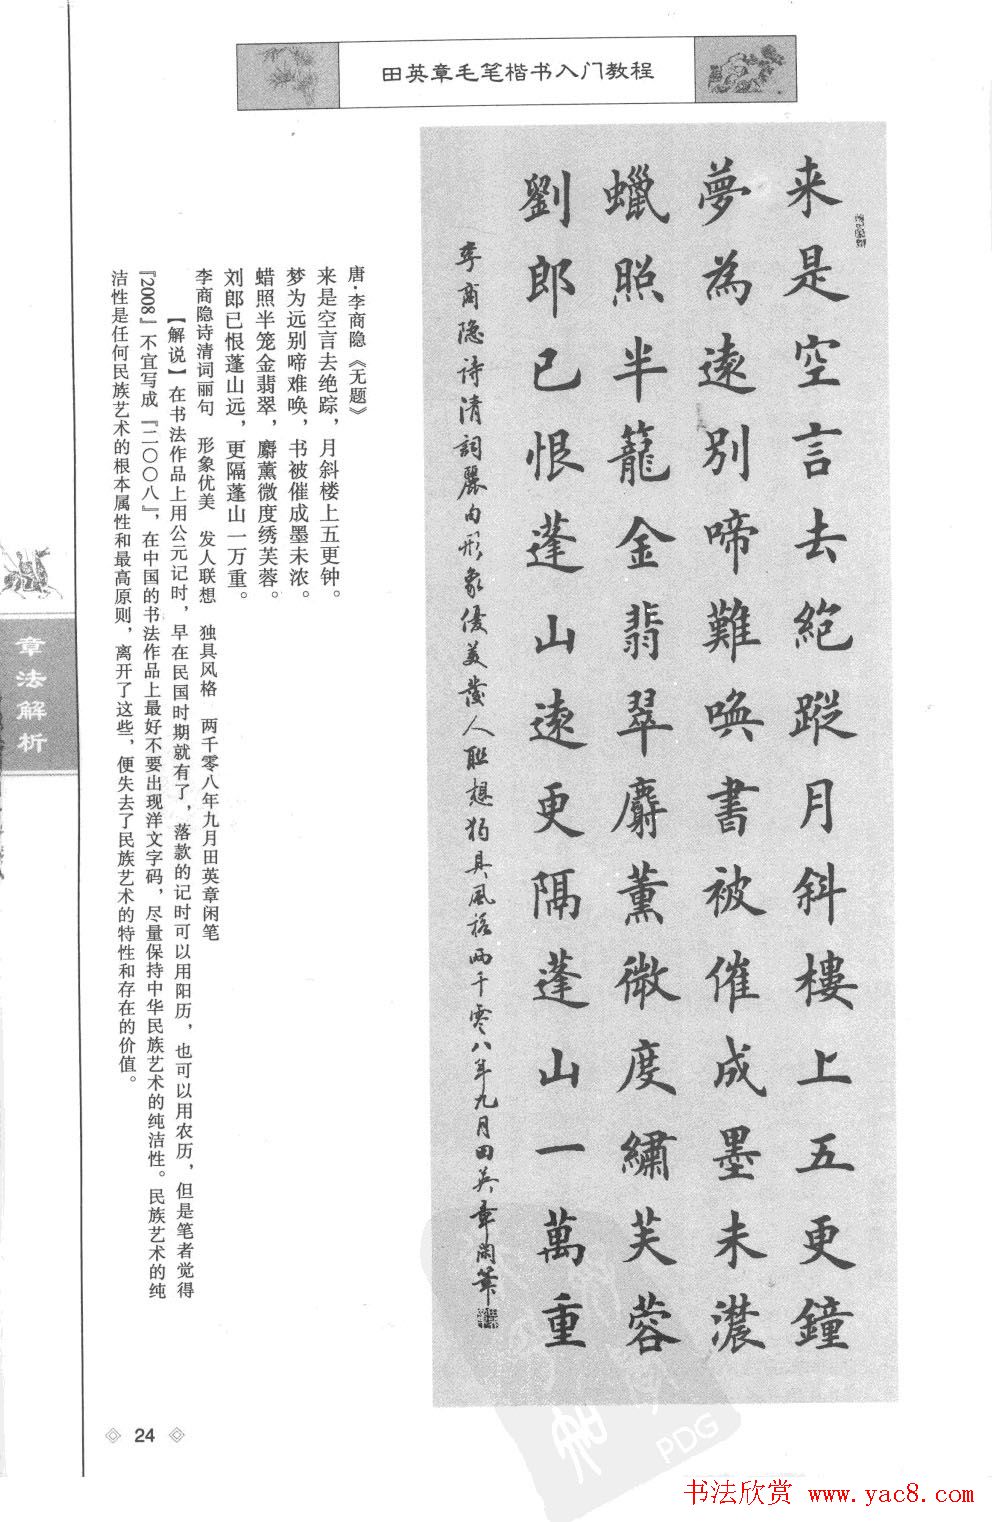 田英章毛笔楷书入门教程
来是空言去絶蹤月斜樓上五更鐘
夢為遠别啼難喚書被催成墨未濃
蠟照半籠金翡翠麝薰微度繡芙蓉
劉郎已恨蓬山遠更隔蓬山一萬重
李商隐诗清詞麗句形象優美發人联想独具風格两千零八年九月田英章闲筆
唐·李商隐《无题》
来是空言去绝踪，月斜楼上五更钟。
梦为远别啼难唤，书被催成墨未浓。
蜡照半笼金翡翠，麝薰微度绣芙蓉。
刘郎已恨蓬山远，更隔蓬山一万重。
李商隐诗清词丽句 形象优美 发人联想 独具风格 两千零八年九月田英章闲笔
【解说】在书法作品上用公元记时，早在民国时期就有了，落款的记时可以用阳历，也可以用农历，但是笔者觉得
『2008』不宜写成『二〇〇八』，在中国的书法作品上最好不要出现洋文字码，尽量保持中华民族艺术的纯洁性。民族艺术的纯
洁性是任何民族艺术的根本属性和最高原则，离开了这些，便失去了民族艺术的特性和存在的价值。
章法解析
24
PDG
书法欣赏 www.yac8.com